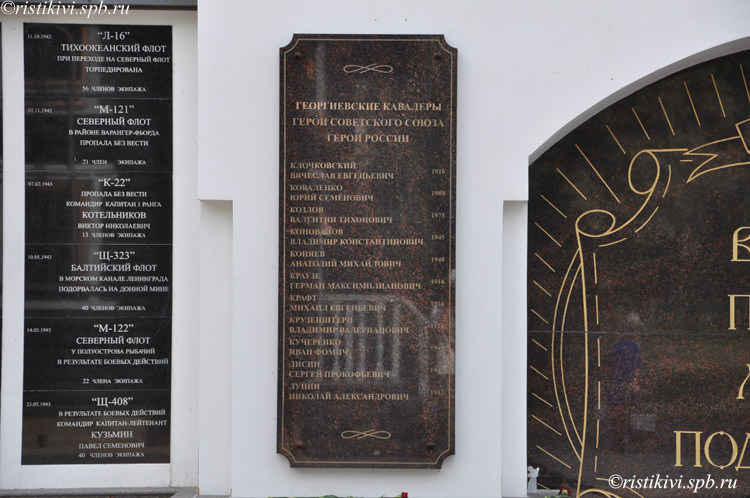 ©ristikivi.spb.ru
11.10.1942
"Л-16"
ТИХООКЕАНСКИЙ ФЛОТ
ПРИ ПЕРЕХОДЕ НА СЕВЕРНЫЙ ФЛОТ
ТОРПЕДИРОВАНА
56 ЧЛЕНОВ ЭКИПАЖА
07.11.1942
"М-121"
СЕВЕРНЫЙ ФЛОТ
В РАЙОНЕ ВАРАНГЕР-ФЬОРДА
ПРОПАЛА БЕЗ ВЕСТИ
21 ЧЛЕН ЭКИПАЖА
07.02.1943
"К-22"
ПРОПАЛА БЕЗ ВЕСТИ
КОМАНДИР КАПИТАН 1 РАНГА
КОТЕЛЬНИКОВ
ВИКТОР НИКОЛАЕВИЧ
13 ЧЛЕНОВ ЭКИПАЖА
10.05.1943
"Щ-323"
БАЛТИЙСКИЙ ФЛОТ
В МОРСКОМ КАНАЛЕ ЛЕНИНГРАДА
ПОДОРВАЛАСЬ НА ДОННОЙ МИНЕ
40 ЧЛЕНОВ ЭКИПАЖА
14.05.1943
"М-122"
СЕВЕРНЫЙ ФЛОТ
У ПОЛУОСТРОВА РЫБАЧИЙ
В РЕЗУЛЬТАТЕ БОЕВЫХ ДЕЙСТВИЙ
22 ЧЛЕНА ЭКИПАЖА
23.05.1943
"Щ-408"
В РЕЗУЛЬТАТЕ БОЕВЫХ ДЕЙСТВИЙ
КОМАНДИР КАПИТАН-ЛЕЙТЕНАНТ
КУЗЬМИН
ПАВЕЛ СЕМЕНОВИЧ
40 ЧЛЕНОВ ЭКИПАЖА
ГЕОРГИЕВСКИЕ КАВАЛЕРЫ
ГЕРОИ СОВЕТСКОГО СОЮЗА
ГЕРОИ РОССИИ
КЛОЧКОВСКИЙ
ВЯЧЕСЛАВ ЕВГЕНЬЕВИЧ 1916
КОВАЛЕНКО
ЮРИЙ СЕМЕНОВИЧ 1989
КОЗЛОВ
ВАЛЕНТИН ТИХОНОВИЧ 1978
КОНОВАЛОВ
ВЛАДИМИР КОНСТАНТИНОВИЧ 1945
КОНЯЕВ
АНАТОЛИЙ МИХАЙЛОВИЧ 1940
КРАУЗЕ
ГЕРМАН МАКСИМИЛИАНОВИЧ 1916
КРАФТ
МИХАИЛ ЕВГЕНЬЕВИЧ
КРУЗЕНШТЕРН
ВЛАДИМИР ВАЛЕРИАНОВИЧ
КУЧЕРЕНКО
ИВАН ФОМИЧ
ЛИСИН
СЕРГЕЙ ПРОКОФЬЕВИЧ
ЛУНИН
НИКОЛАЙ АЛЕКСАНДРОВИЧ 1942
В
П
ПОД
©ristikivi.spb.ru